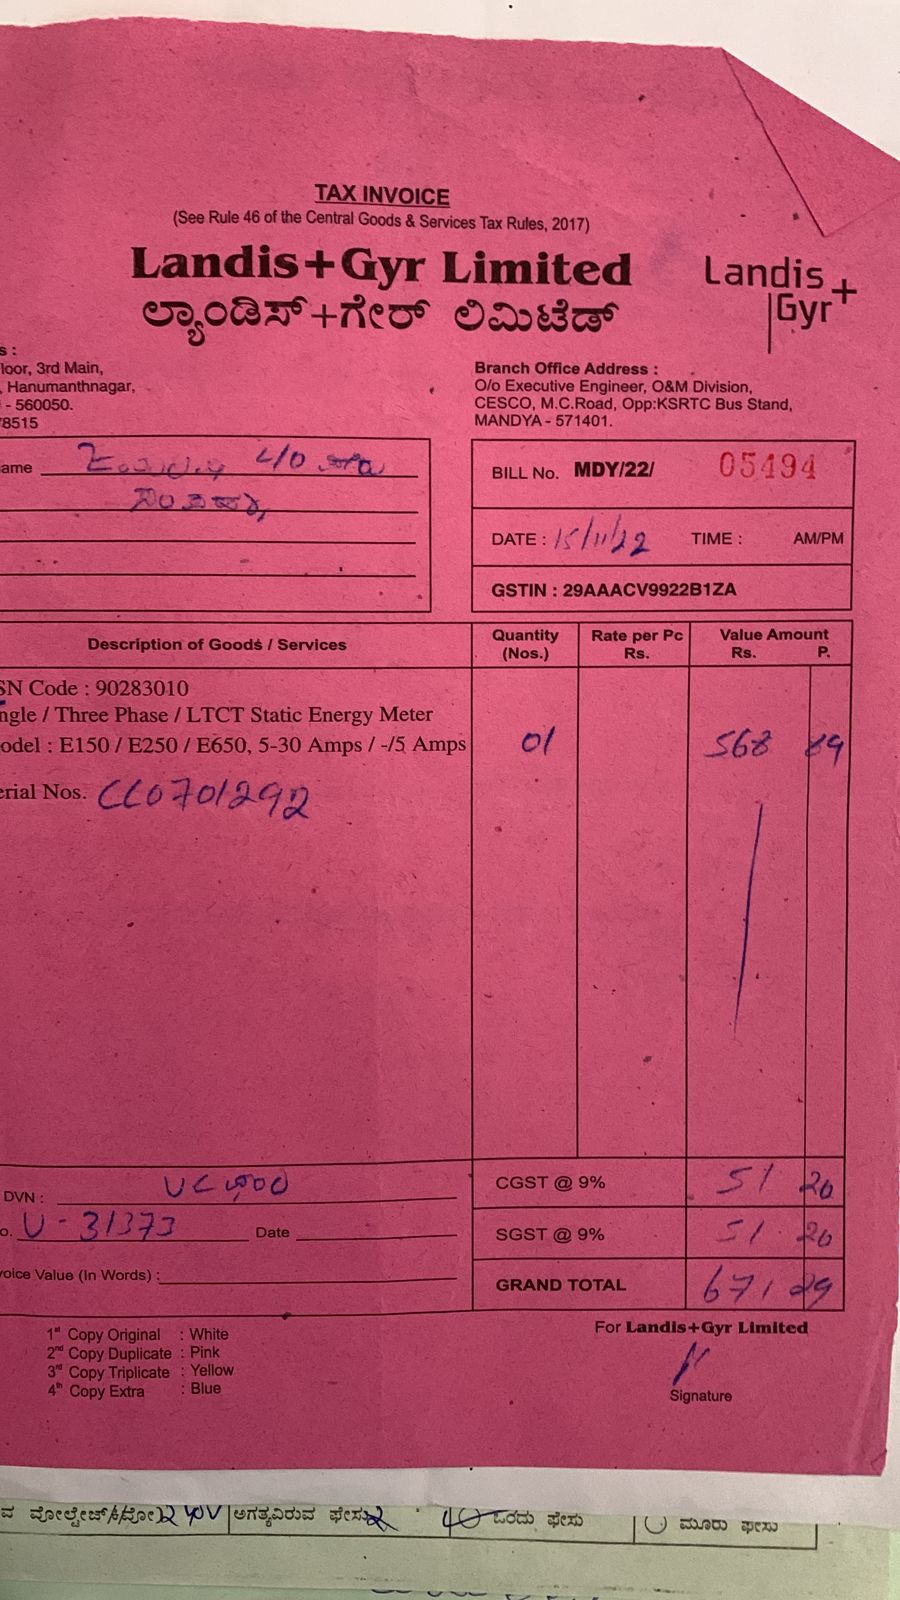 TAX INVOICE
(See Rule 46 of the Central Goods & Services Tax Rules, 2017)
Landis+Gyr Limited
ಲ್ಯಾಂಡಿಸ್+ಗೇರ್ ಲಿಮಿಟೆಡ್
Landis+
Gyr
s :
loor, 3rd Main,
, Hanumanthnagar,
- 560050.
78515
Branch Office Address :
O/o Executive Engineer, O&M Division,
CESCO, M.C.Road, Opp:KSRTC Bus Stand,
MANDYA - 571401.
ame
BILL No. MDY/22/ 05494
DATE : 15/11/22 TIME : AM/PM
GSTIN : 29AAACV9922B1ZA
Description of Goods / Services Quantity (Nos.) Rate per Pc Rs. Value Amount Rs. P.
SN Code : 90283010
ngle / Three Phase / LTCT Static Energy Meter
odel : E150 / E250 / E650, 5-30 Amps / -/5 Amps 01 568 89
erial Nos. CC0701292
DVN :
CGST @ 9% 51 20
o. U - 31373 Date
SGST @ 9% 51 20
voice Value (In Words) :
GRAND TOTAL 671 29
1st Copy Original : White
2nd Copy Duplicate : Pink
3rd Copy Triplicate : Yellow
4th Copy Extra : Blue
For Landis+Gyr Limited
Signature
ಅಗತ್ಯವಿರುವ ಫೇಸು ಒಂದು ಫೇಸು ಮೂರು ಫೇಸು